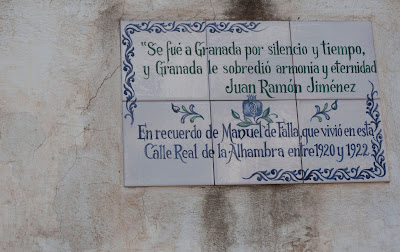 "Se fué a Granada por silencio y tiempo,
y Granada le sobredió armonía y eternidad
Juan Ramón Jiménez
En recuerdo de Manuel de Falla, que vivió en esta
Calle Real de la Alhambra entre 1920 y 1922